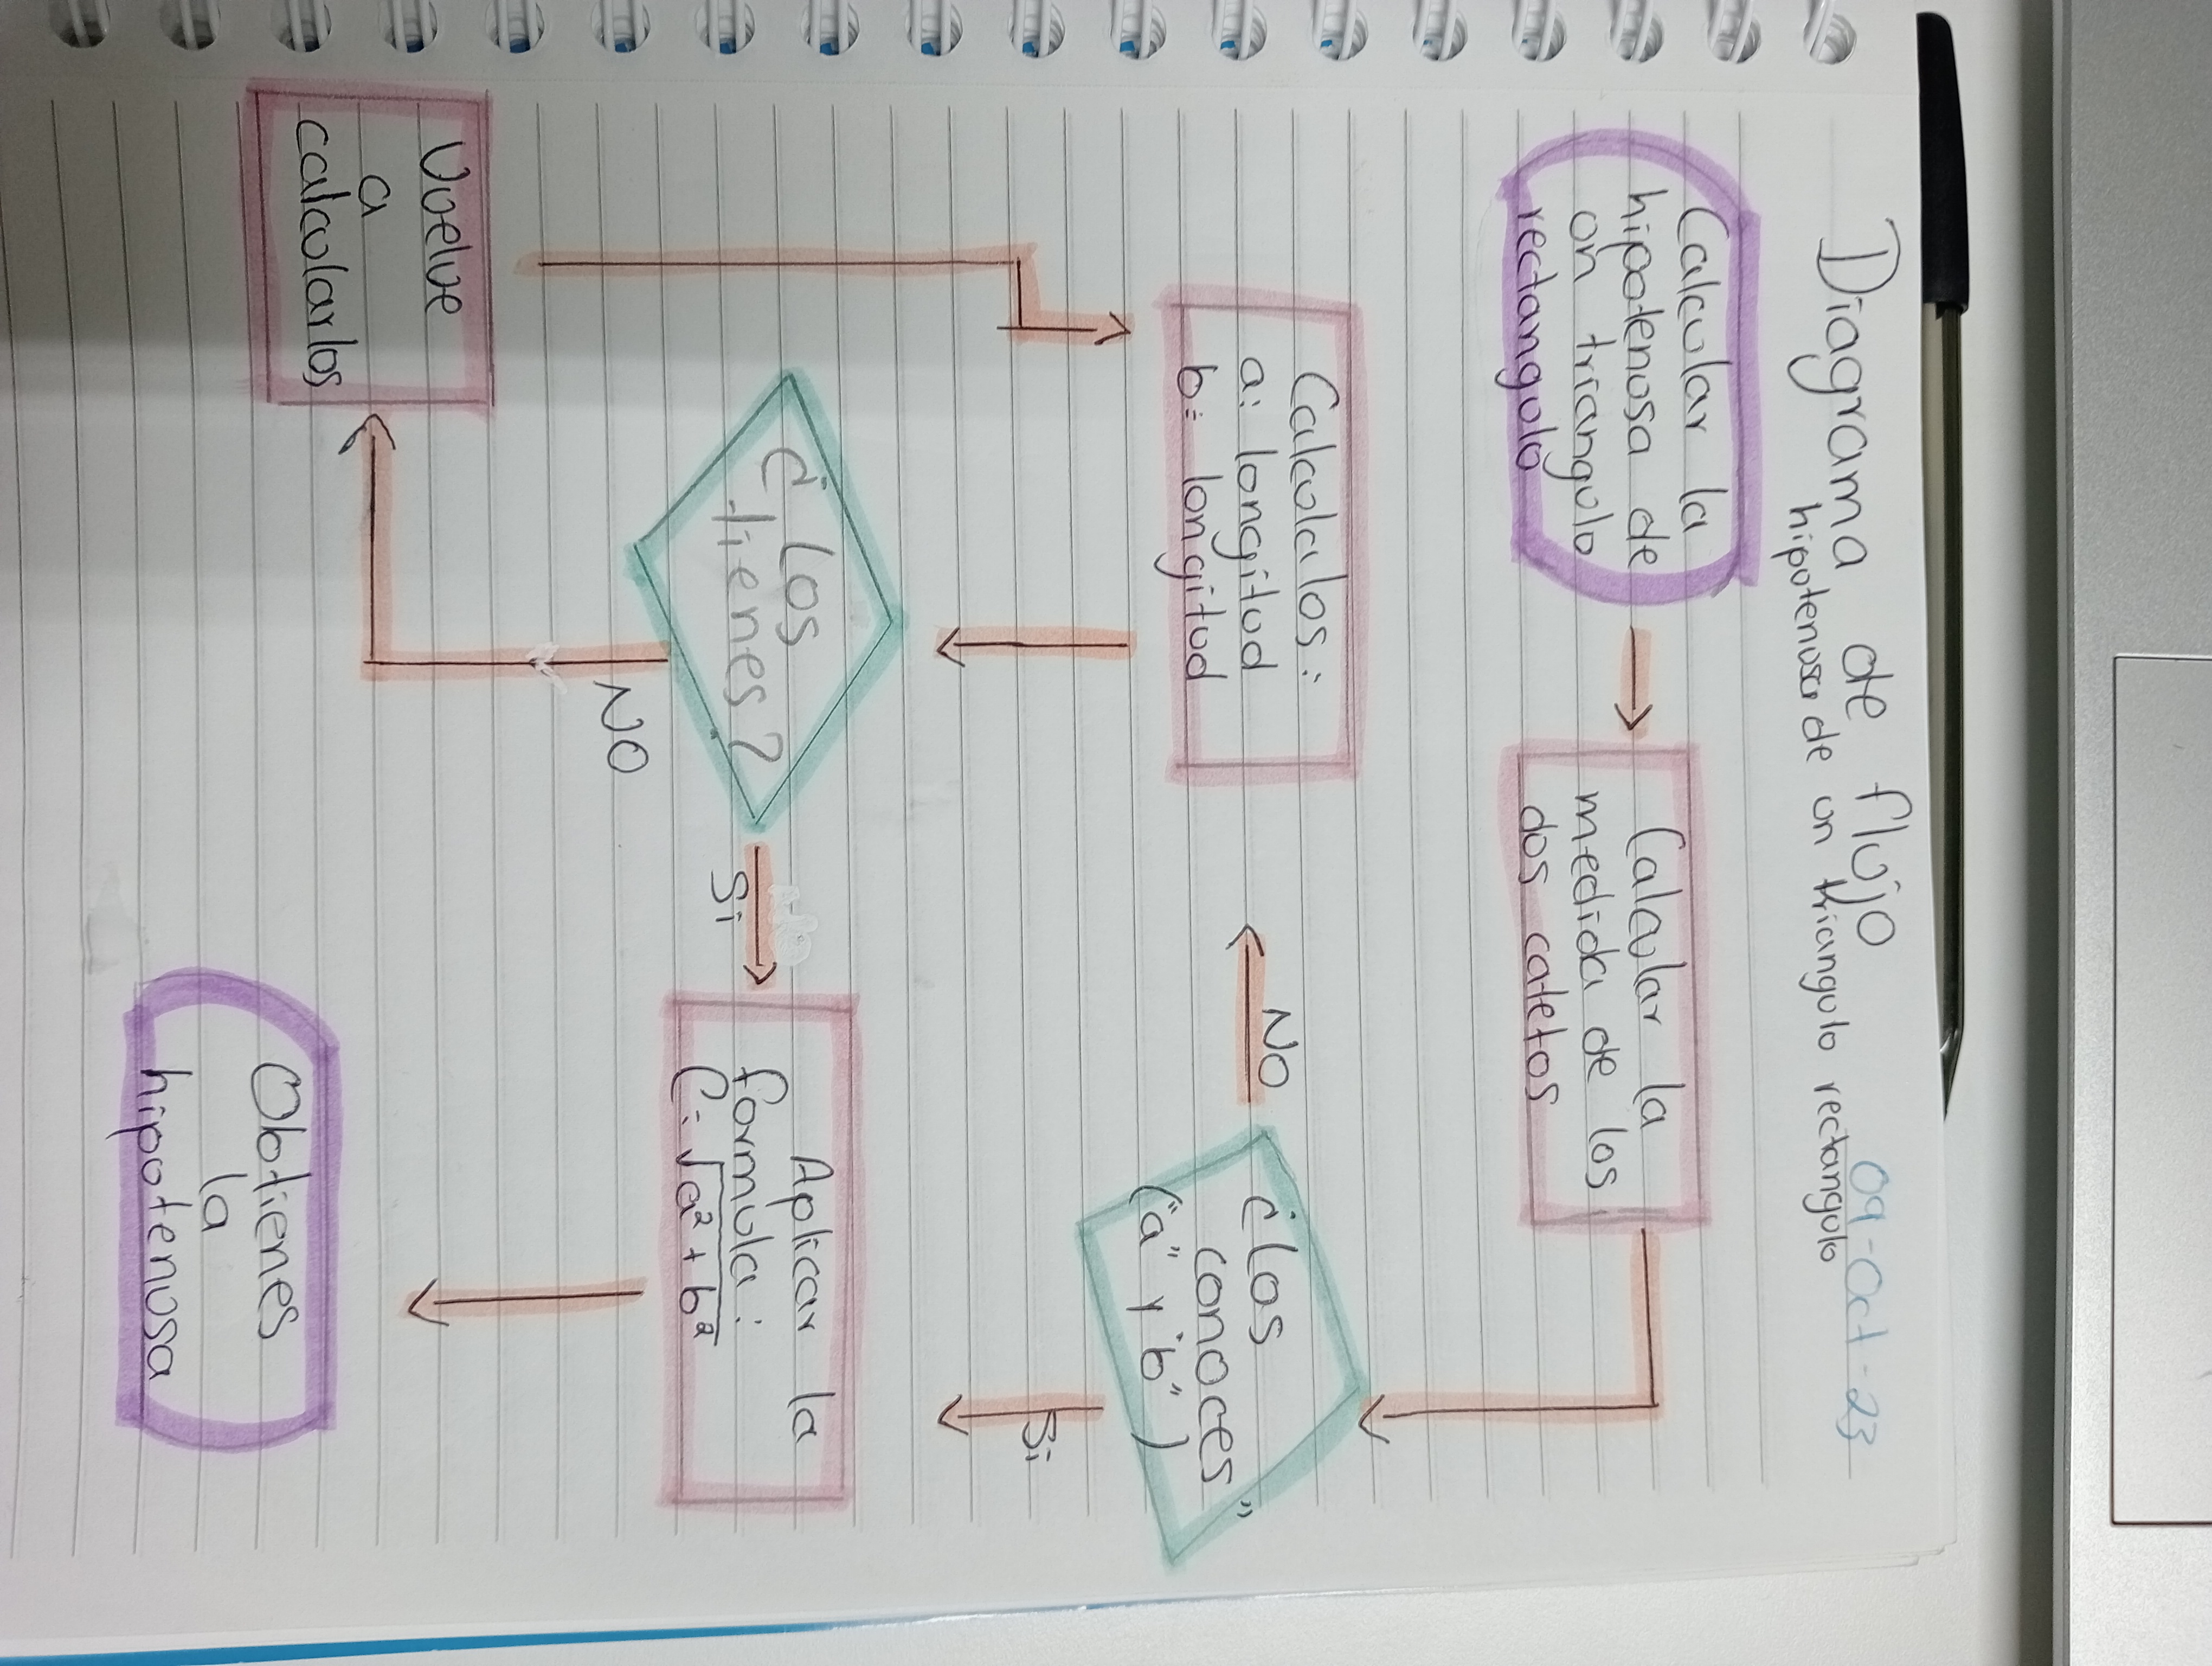 09-Oct-23
Diagrama de flujo
hipotenusa de un triangulo rectangulo
Calcular la
hipotenusa de
un triangulo
rectangulo
Calcular la
medida de los
dos catetos
¿Los
conoces"
("a" y "b")
NO
Si
Calculalos:
a: longitud
b: longitud
¿Los
tienes?
Si
NO
Aplicar la
formula:
C=√a²+b²
Vuelve
a
calcularlos
Obtienes
la
hipotenusa